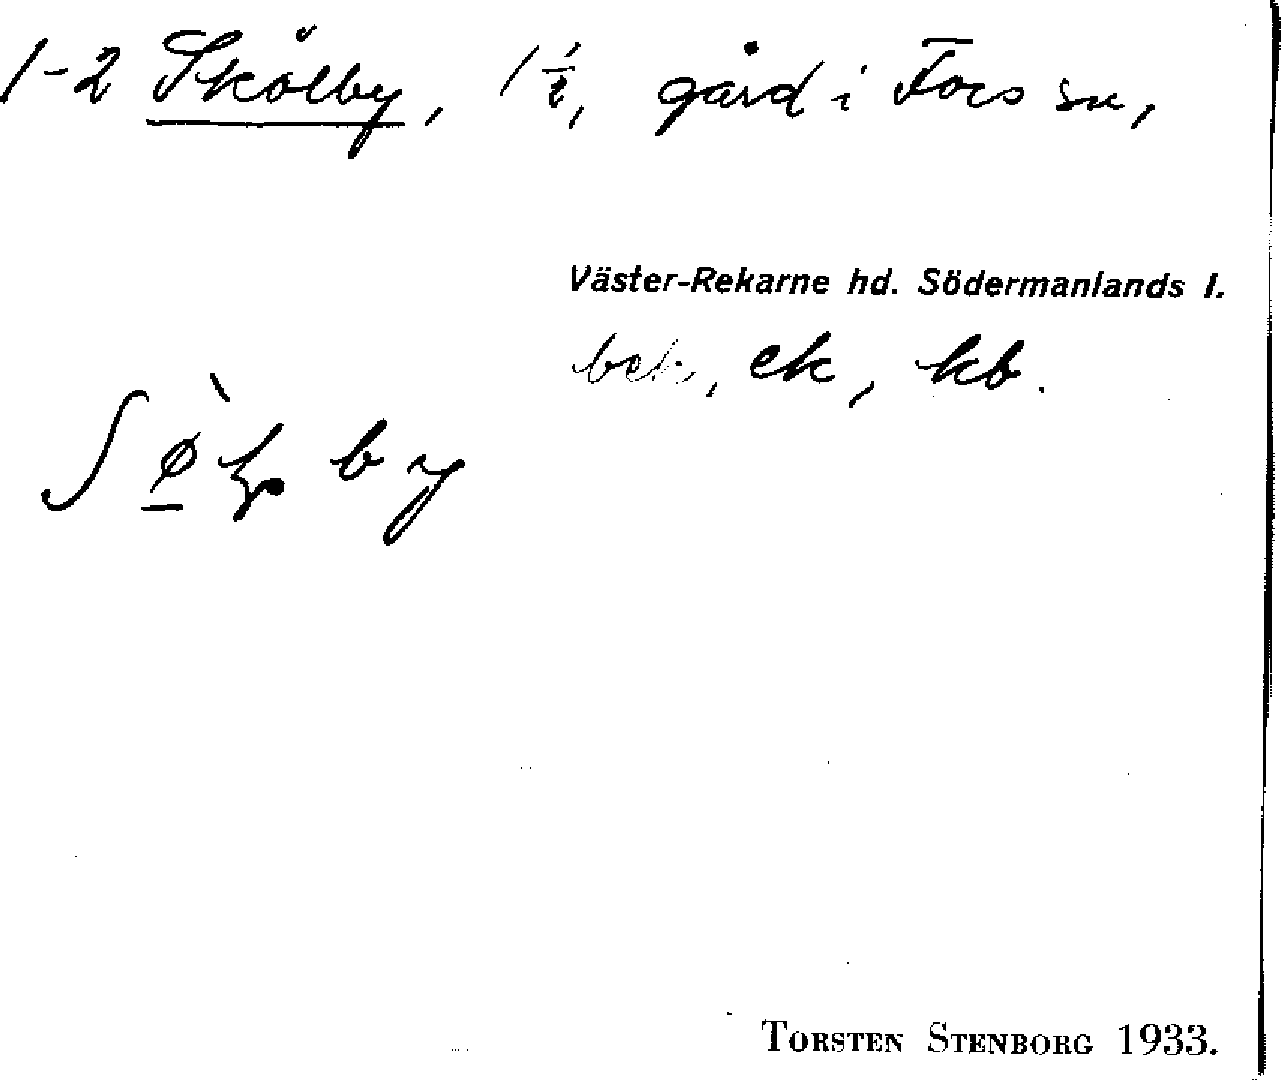 1-2 Skölby, 1 1/2, gård i Fors sn,
Väster-Rekarne hd. Södermanlands l.
bek, ek, kb.
by
TORSTEN STENBORG 1933.